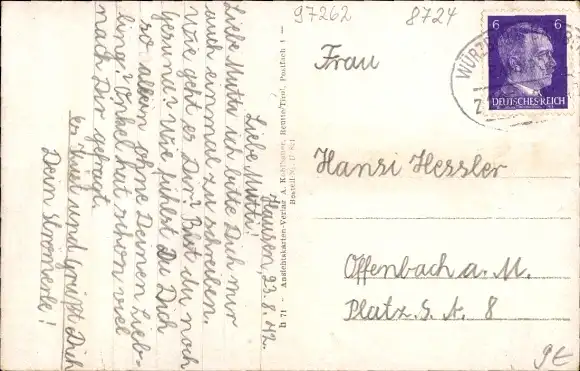 97262
8724
6 6
DEUTSCHES REICH
WÜRZ
Z
Frau
Hansi Hessler
Offenbach a. M.
Platz d. S. A. 8
9€
h 71 - Ansichtskarten-Verlag A. Reutte/Tirol, Postfach 1 -
Bestell-Nr.
Hausen, 23.8.42.
Liebe Mutti!
Liebe Mutti ich bitte Dich mir
auch einmal zu schreiben.
Wie geht es Dir? Bist du noch
gesund? Wie fühlst Du Dich
so allein ohne Deinen Lieb-
ling? Onkel hat schon viel
nach Dir gefragt.
Es küsst und grüßt Dich
Dein Stromerle!